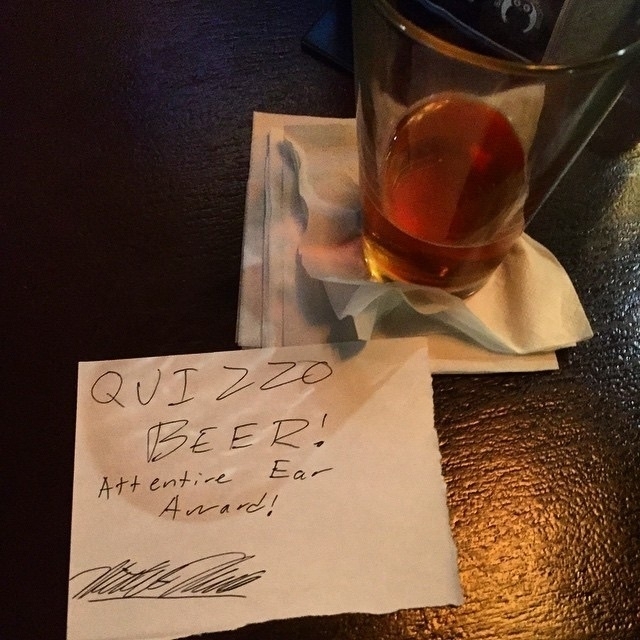 QUIZZO
BEER!
Attentive Ear
Award!